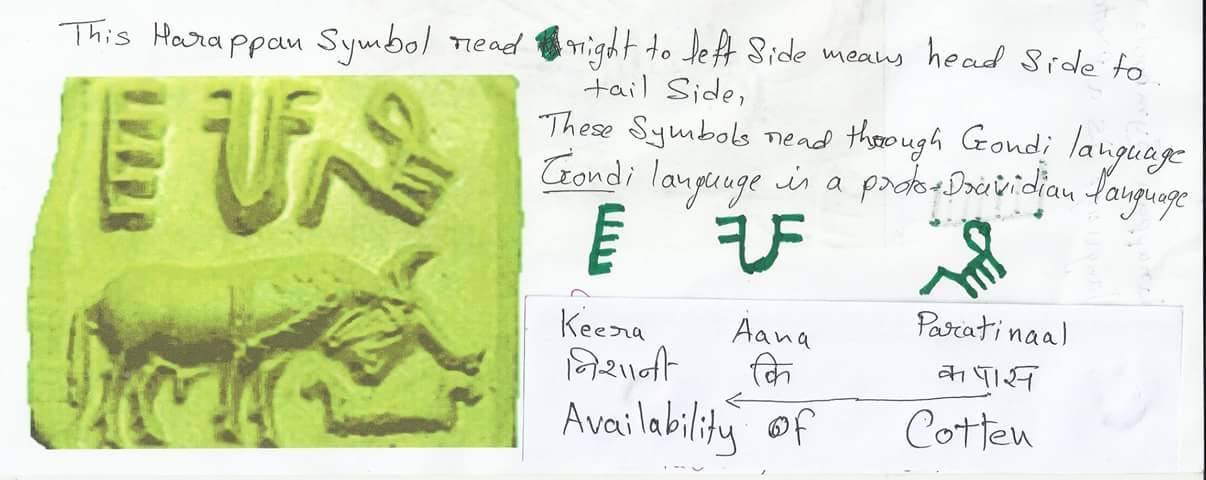 This Harappan Symbol read right to left Side means head Side to
tail Side,
These Symbols read through Gondi language
Gondi language is a proto-Dravidian language
Keera Aana Paratinaal
निशानी कि कपास
Availability Of Cotten